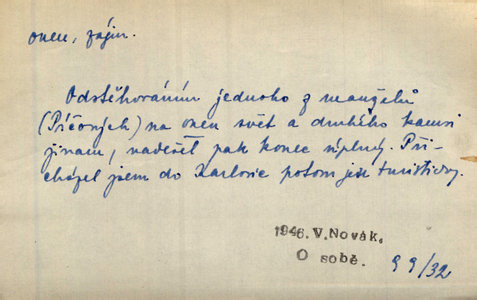 onen, zájm.
Odstěhováním jednoho z manželů
(Píčových) na onen svět a druhého kamsi
jinam, nadešel pak konec úplný. Při-
cházel jsem do Karlovic potom jen turisticky.
1946. V. Novák,
O sobě. 99/32